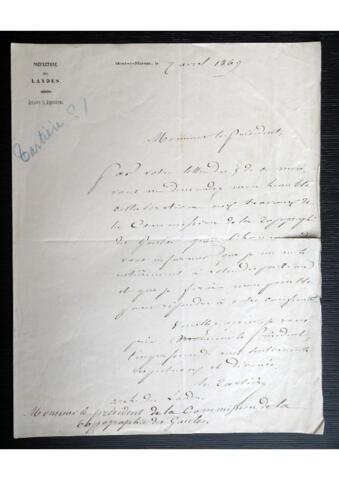 PRÉFECTURE
DES
LANDES
Mont-de-Marsan, le 7 avril 1869
Tartière ? /
Monsieur le Président,
Par votre lettre du 5 de ce mois,
vous me demandez mon humble
collaboration aux travaux de
la Commission de la Topographie
des Gaules. J'ai l'honneur de
vous informer que je me mets
entièrement à votre disposition
et que je ferai mon possible
pour répondre à votre confiance
Veuillez agréer, je vous
prie, Monsieur le Président,
l'expression de mes sentiments
respectueux et dévoués
H. Tartière
arch. des Landes.
Monsieur le président de la Commission de la
topographie des Gaules.